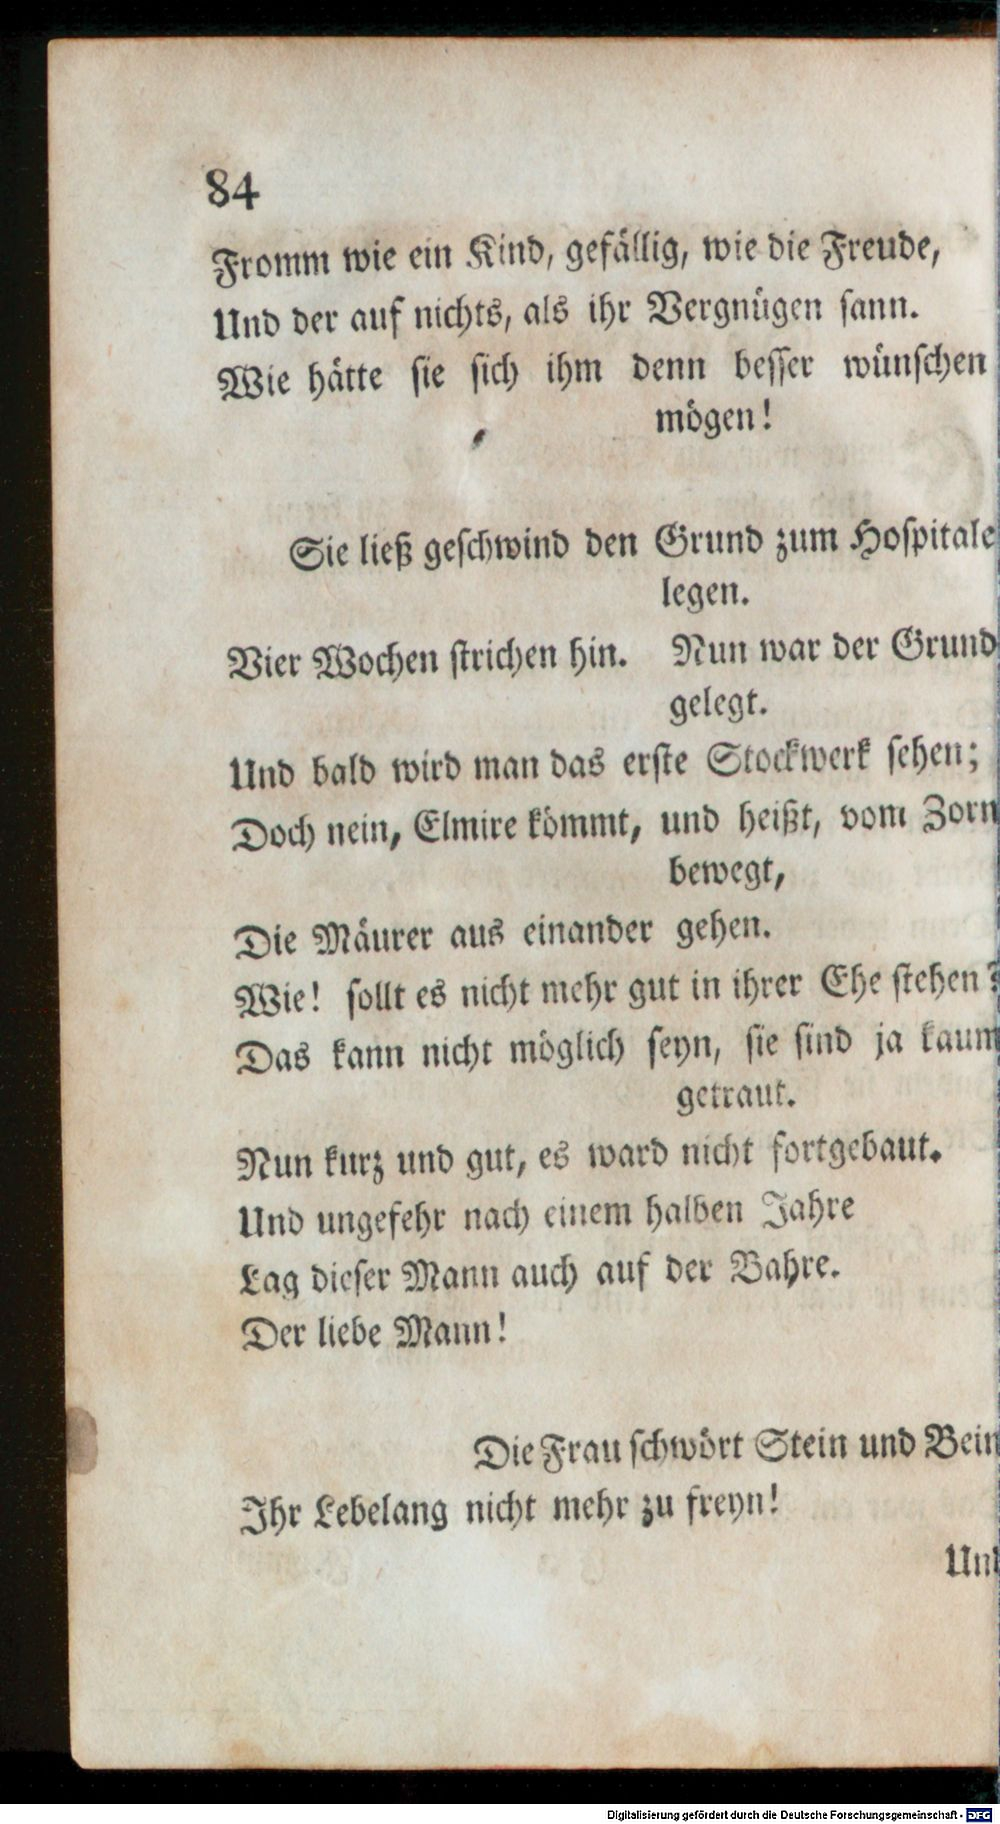 84
Fromm wie ein Kind, gefällig, wie die Freude,
Und der auf nichts, als ihr Vergnügen sann.
Wie hätte sie sich ihm denn besser wünschen
mögen!
Sie ließ geschwind den Grund zum Hospitale
legen.
Vier Wochen strichen hin. Nun war der Grund
gelegt.
Und bald wird man das erste Stockwerk sehen;
Doch nein, Elmire kömmt, und heißt, vom Zorn
bewegt,
Die Mäurer aus einander gehen.
Wie! sollt es nicht mehr gut in ihrer Ehe stehen?
Das kann nicht möglich seyn, sie sind ja kaum
getraut.
Nun kurz und gut, es ward nicht fortgebaut.
Und ungefehr nach einem halben Jahre
Lag dieser Mann auch auf der Bahre.
Der liebe Mann!
Die Frau schwört Stein und Bein
Ihr Lebelang nicht mehr zu freyn!
Und
Digitalisierung gefördert durch die Deutsche Forschungsgemeinschaft - DFG